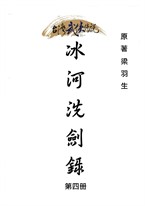 原著梁羽生
冰河洗劍錄
第四册